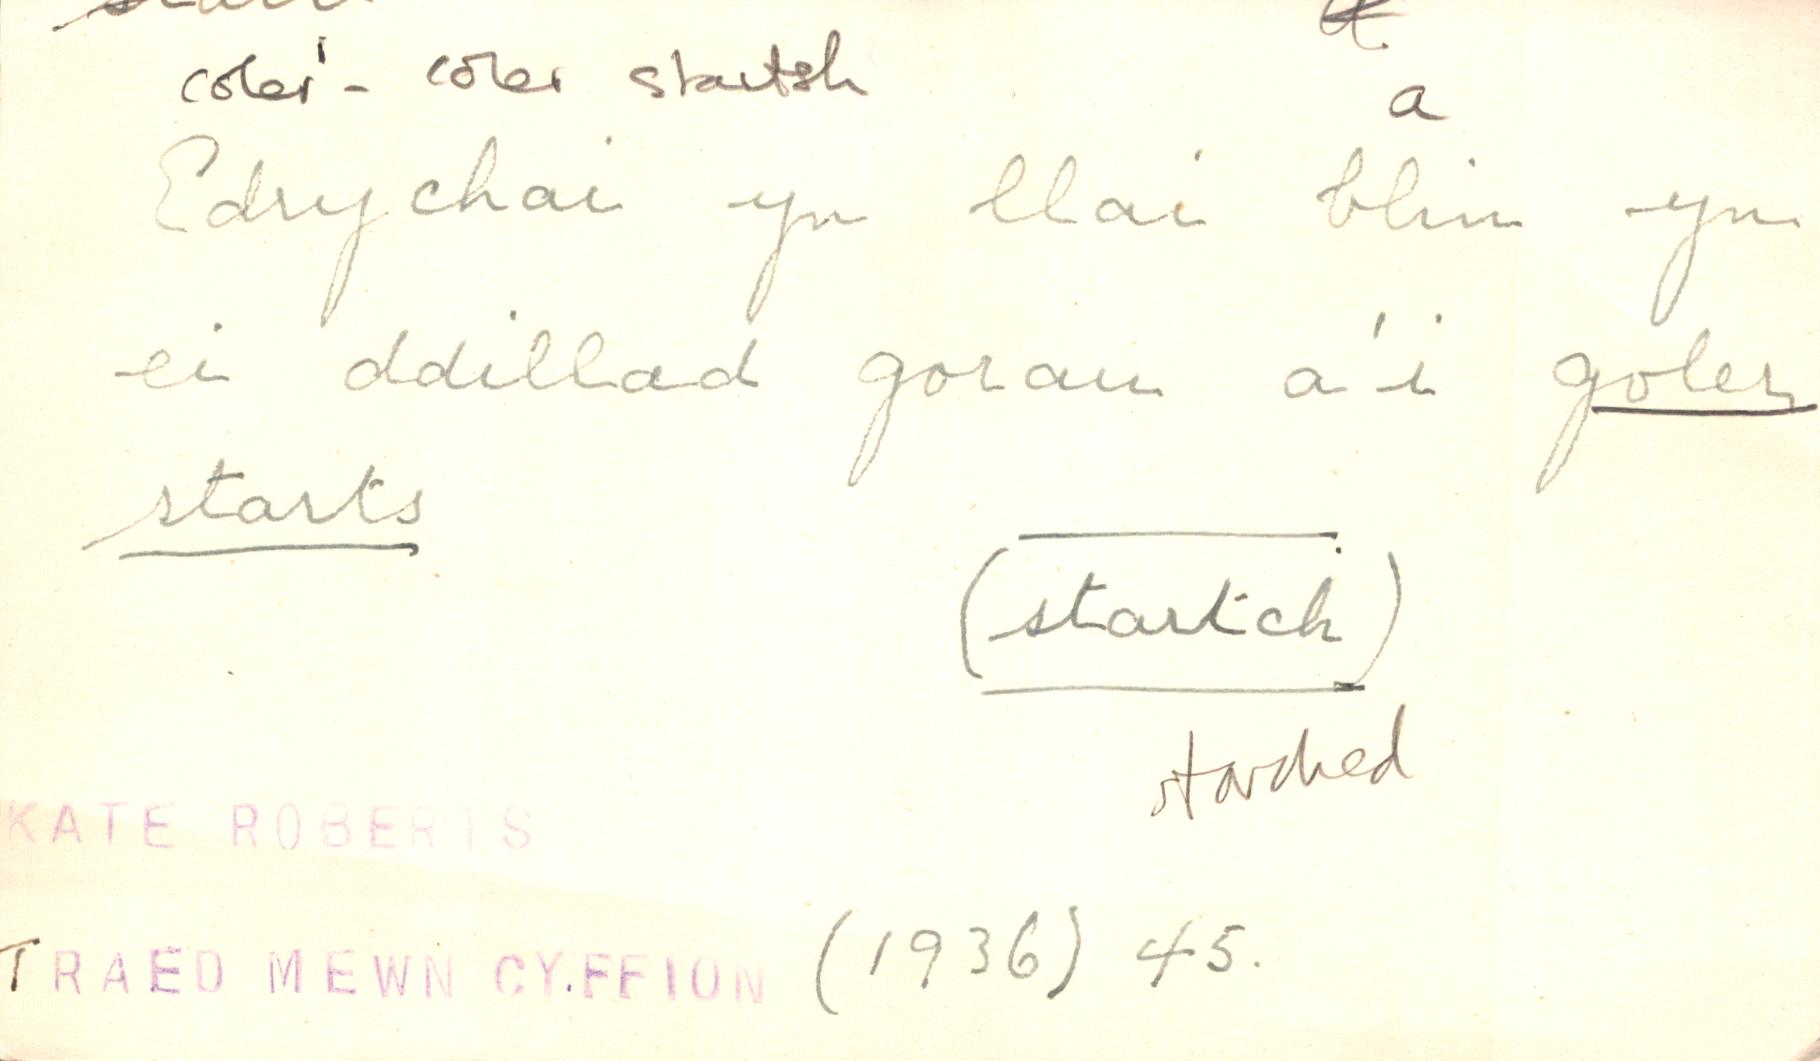 coler¹ - coler startsh
a
Edrychai yn llai blin yn
ei ddillad gorau a'i goler
starts
(startch)
starched
KATE ROBERTS
TRAED MEWN CYFFION (1936) 45.